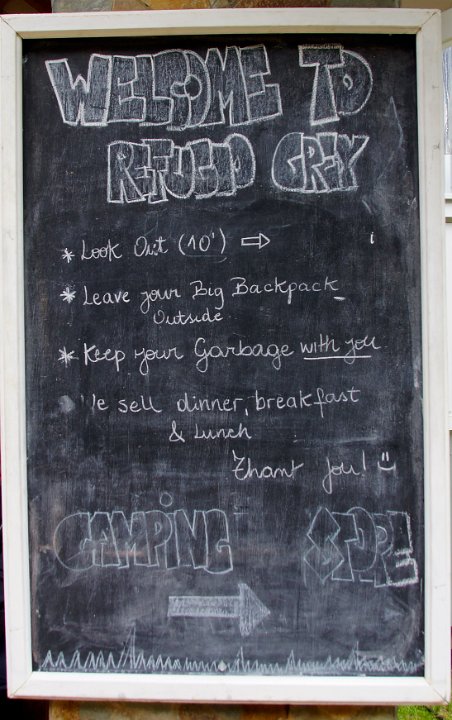 WELCOME TO
REFUGIO GREY
* Look Out (10') ⇨
* Leave your Big Backpack
Outside
* Keep your Garbage with you
We sell dinner, breakfast
& Lunch
Thank you! :)
CAMPING STORE